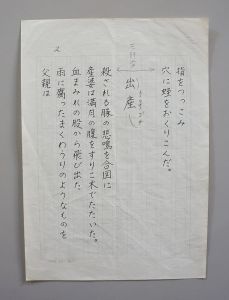 指をつっこみ
穴に蛭をおくりこんだ。
三行分
出産し
殺される豚の悲鳴を合図に
産婆は満月の腹をすりこ木でたたいた。
血まみれの股から飛び出た
雨に腐ったまくわうりのようなものを
父親は